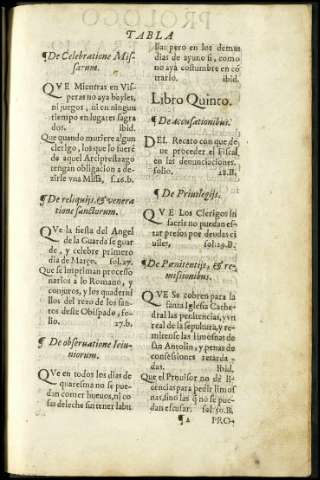 TABLA
¶ De Celebratione Mis-
sarum.
QVE Mientras en Vis-
peras no aya bayles,
ni juegos, ni en ningun
tiempo en lugares sagra
dos. ibid.
Que quando muriere algun
clerigo, los que lo fueré
de aquel Arciprestazgo
tengan obligacion a de-
zirle vna Missa, f.26.b.
¶ De reliquijs, & venera
tione sanctorum.
QVe la fiesta del Angel
de la Guarda se guar
de, y celebre primero
dia de Março, fol.27.
Que se impriman processio
narios a lo Romano, y
conjuros, y los quaderni
llos del rezo de los san-
tos deste Obispado, fo-
lio. 27.b.
¶ De obseruatione Ieiu-
niorum.
QVe en todos los dias de
quaresma no se pue-
dan comer hueuos, ni co
sas de leche sin tener labu
lla: pero en los demas
dias de ayuno si, como
no aya costumbre en co
trario. ibid.
Libro Quinto.
¶ De accusationibus.
DEL Recato con que de-
ue proceder el Fiscal
en las denunciaciones.
folio. 28.B.
¶ De Priuilegijs.
QVE Los Clerigos in
sacris no puedan es-
tar presos por deudas ci
uiles, fol.29.B.
¶ De Pœnitentijs, & re,
misionibus.
QVE Se cobren para la
santa Iglesia Cathe-
dral las penitencias, y vn
real de la sepultura, y re-
mitense las limosnas de
san Antolin, y penas de
confessiones retarda-
das. Ibid.
Que el Prouisor no dè li-
cencias para pedir limos
nas, sino las q̃ no se pue-
dan escusar. fol.30.B.
¶2 PRO-